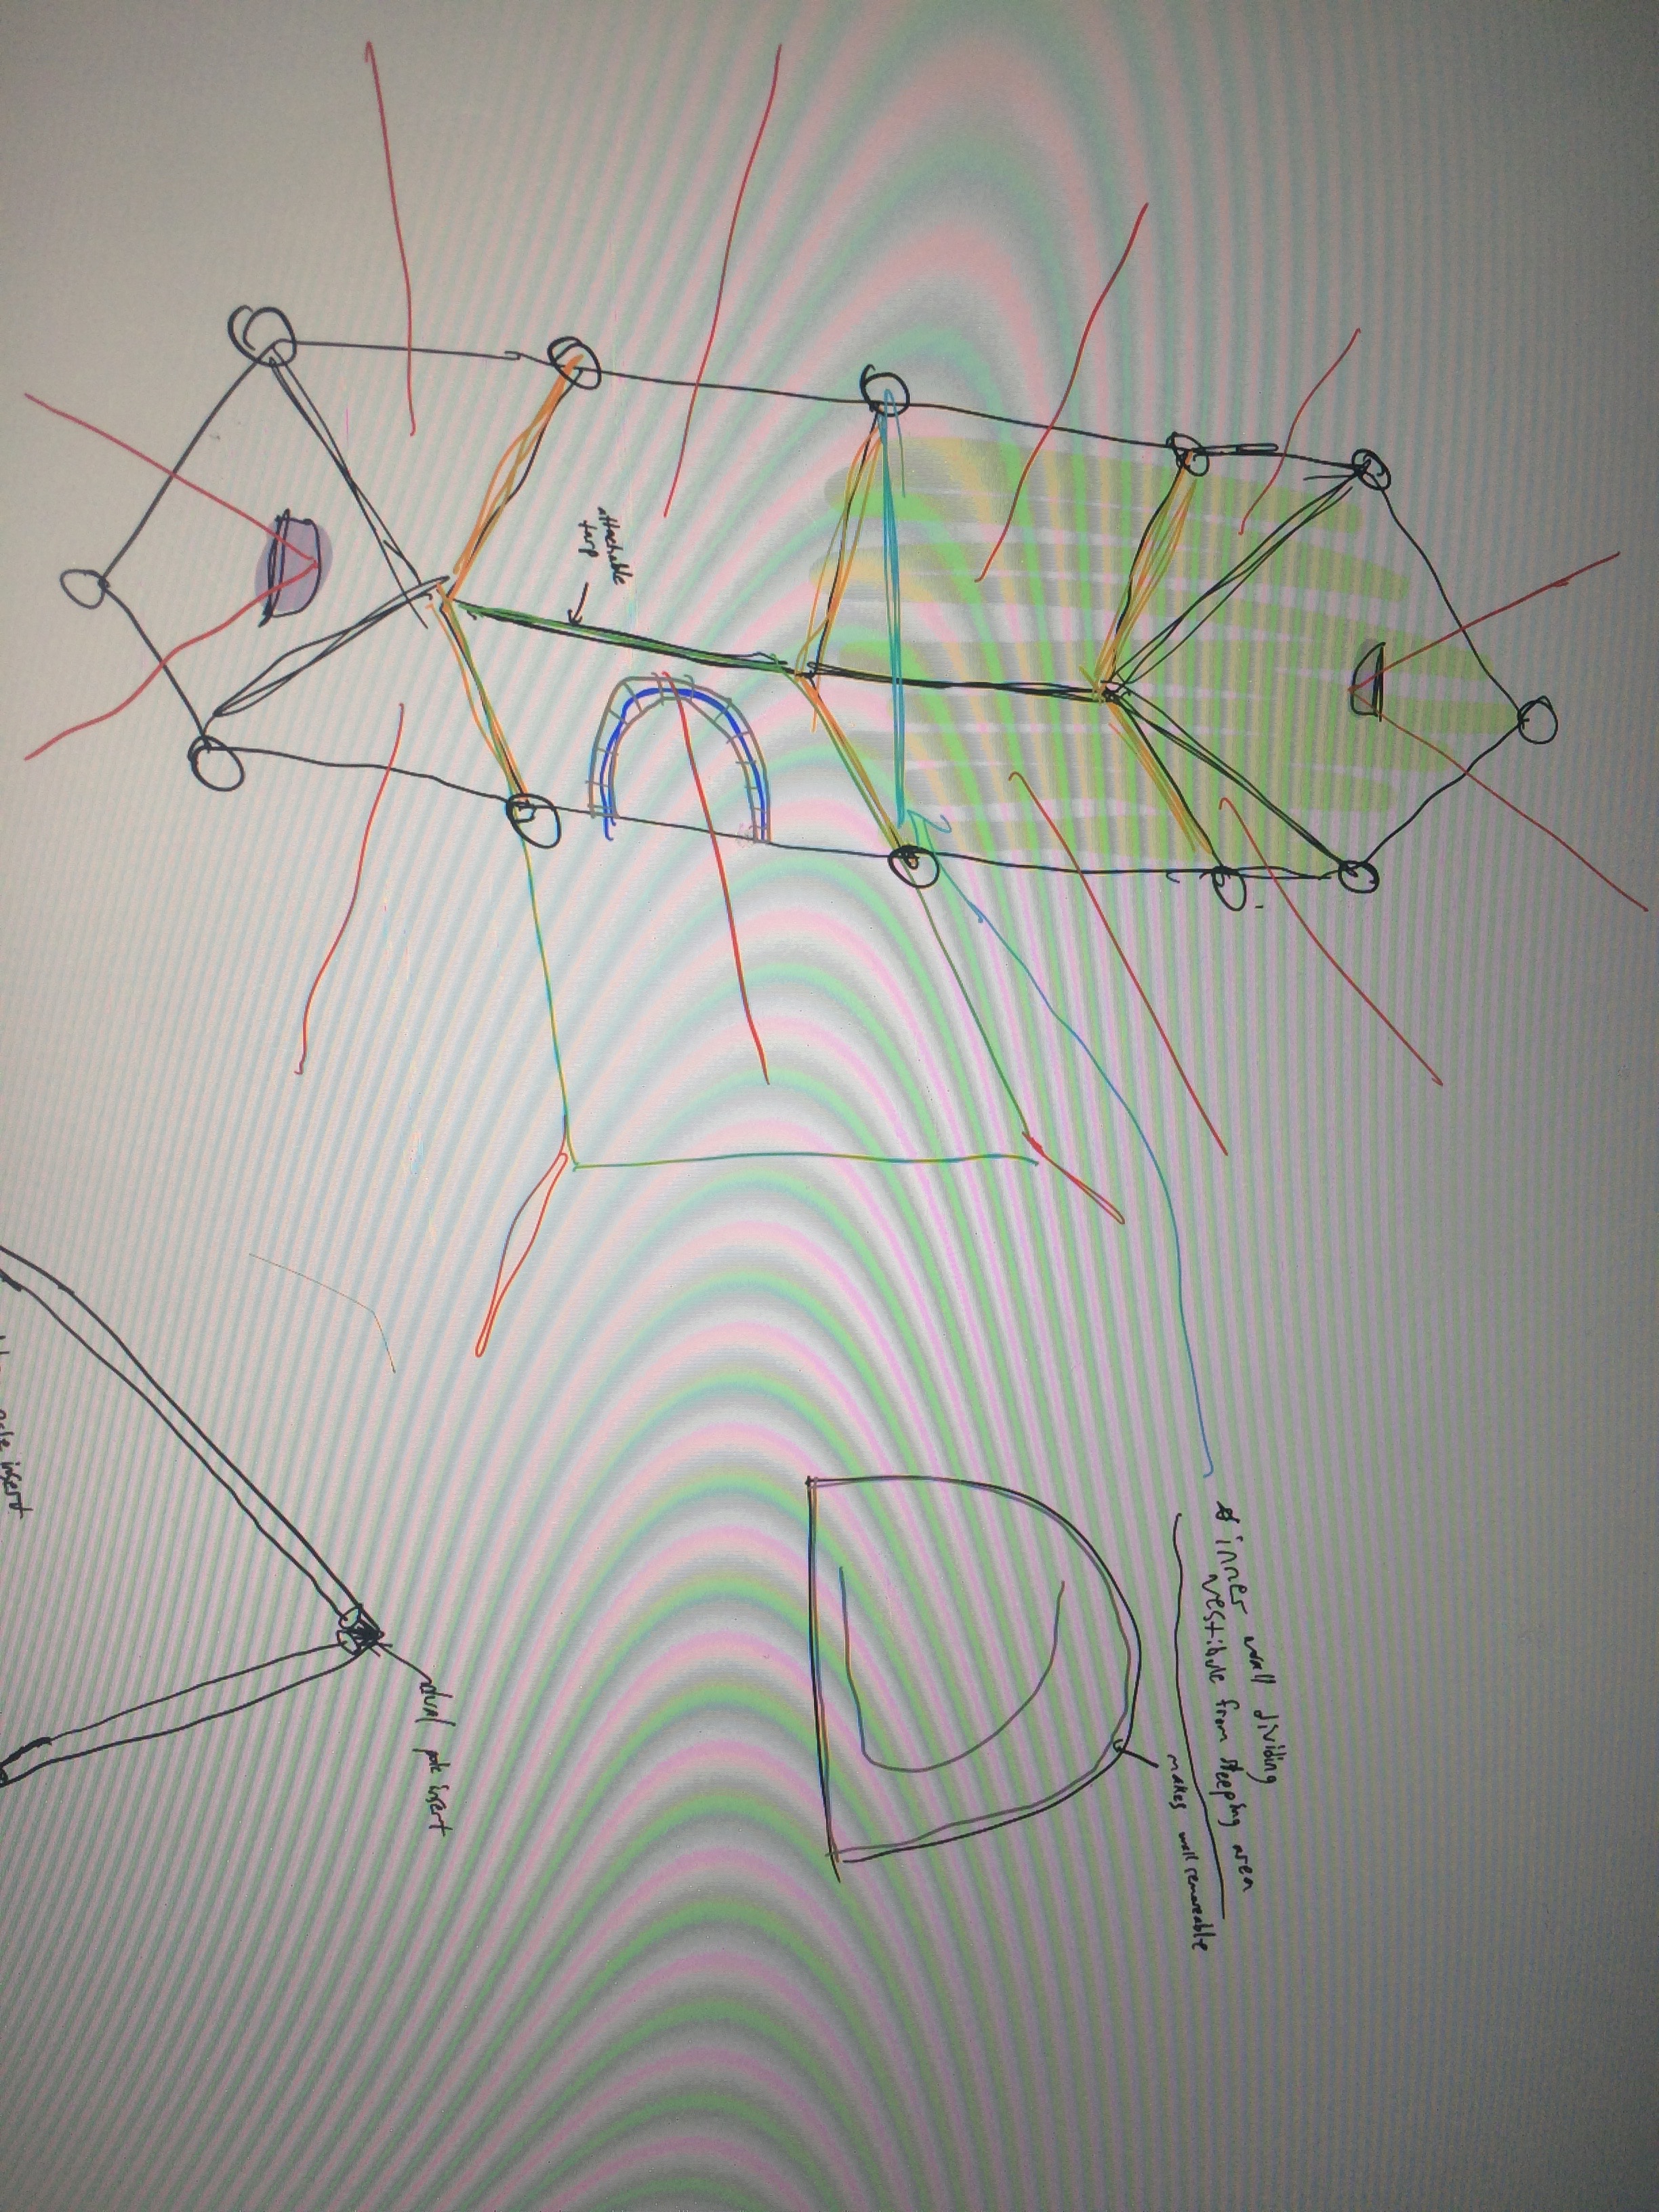 attachable
tarp
inner wall dividing
vestibule from sleeping area
makes wall removeable
dual pole insert
pole insert